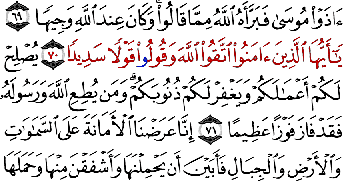 ءَاذَوْا۟ مُوسَىٰ فَبَرَّأَهُ ٱللَّهُ مِمَّا قَالُوا۟ ۚ وَكَانَ عِندَ ٱللَّهِ وَجِيهًا ﴿٦٩﴾
يَـٰٓأَيُّهَا ٱلَّذِينَ ءَامَنُوا۟ ٱتَّقُوا۟ ٱللَّهَ وَقُولُوا۟ قَوْلًا سَدِيدًا ﴿٧٠﴾ يُصْلِحْ
لَكُمْ أَعْمَـٰلَكُمْ وَيَغْفِرْ لَكُمْ ذُنُوبَكُمْ ۗ وَمَن يُطِعِ ٱللَّهَ وَرَسُولَهُۥ
فَقَدْ فَازَ فَوْزًا عَظِيمًا ﴿٧١﴾ إِنَّا عَرَضْنَا ٱلْأَمَانَةَ عَلَى ٱلسَّمَـٰوَٰتِ
وَٱلْأَرْضِ وَٱلْجِبَالِ فَأَبَيْنَ أَن يَحْمِلْنَهَا وَأَشْفَقْنَ مِنْهَا وَحَمَلَهَا